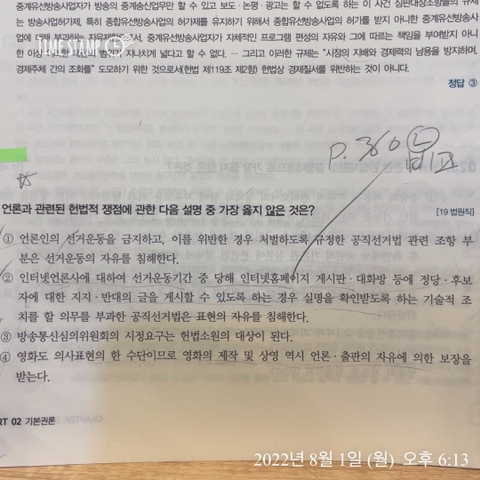 중계유선방송사업자가 방송의 중계송신업무만 할 수 있고 보도 · 논평 · 광고는 할 수 없도록 하는 이 사건 심판대상조항들의 규제
는 방송사업허가제, 특히 종합유선방송사업의 허가제를 유지하기 위해서
종합유선방송사업의 허가를 받지 아니한 중계유선방송사
업에 대해 부과하는
중계유선방송사업자가 자체적인 프로그램 편성의 자유와 그에 따르는 책임을 부여받지 아니
한 이상
지나치게 넓다고 할 수 없다. … 그리고 이러한 규제는 "시장의 지배와 경제력의 남용을 방지하며,
경제주체 간의 조화를" 도모하기 위한 것으로서(헌법 제119조 제2항) 헌법상 경제질서를 위반하는 것이 아니다.
TIMESTAMP
정답 ③
P. 360
언론과 관련된 헌법적 쟁점에 관한 다음 설명 중 가장 옳지 않은 것은?
[19 법원직]
① 언론인의 선거운동을 금지하고, 이를 위반한 경우 처벌하도록 규정한 공직선거법 관련 조항 부
분은 선거운동의 자유를 침해한다.
② 인터넷언론사에 대하여 선거운동기간 중 당해 인터넷홈페이지 게시판 · 대화방 등에 정당 · 후보
자에 대한 지지 · 반대의 글을 게시할 수 있도록 하는 경우 실명을 확인받도록 하는 기술적 조
치를 할 의무를 부과한 공직선거법은 표현의 자유를 침해한다.
③ 방송통신심의위원회의 시정요구는 헌법소원의 대상이 된다.
④ 영화도 의사표현의 한 수단이므로 영화의 제작 및 상영 역시 언론 · 출판의 자유에 의한 보장을
받는다.
RT 02 기본권론
2022년 8월 1일 (월) 오후 6:13